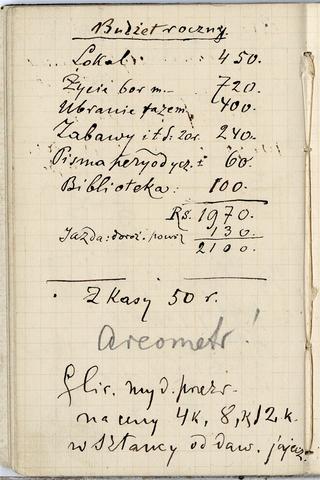 Budżet roczny.
Lokal: 450.
Życie 60 r m.— 720.
Ubranie razem 400.
Zabawy i t d: 20r. 240.
Pisma peryodycz: i 60.
Biblioteka: 100.
Rs. 1970.
Jazda: doroż. powr 130.
2100.
Z Kasy 50 r.
Areometr!
Glic. myd. prezr.
na ceny 4k, 8, k/2 k.
w sztancy od daw. jajecz.